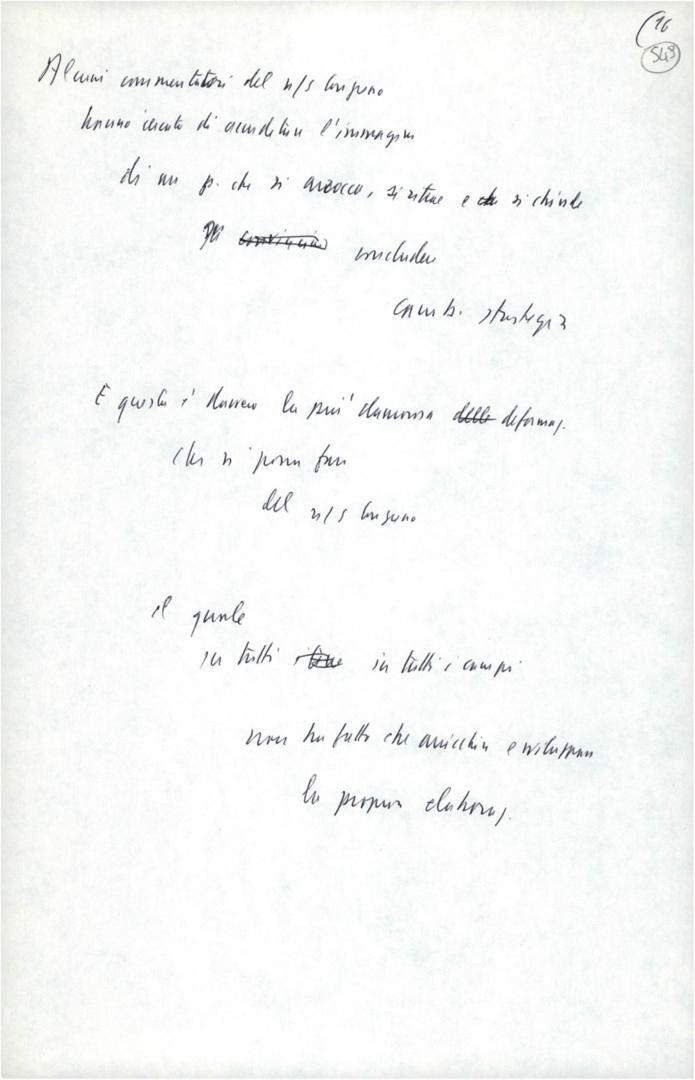 16
543
Alcuni commentatori del n/s Congresso
hanno cercato di accreditare l'immagine
di un p. che si arrocca, si ritrae e che si chiude
per concludere
camb. strategia
E questa è davvero la più clamorosa delle deformaz.
che si possa fare
del n/s Congresso
il quale
in tutti in tutti i campi
non ha fatto che arricchire e sviluppare
la propria elaboraz.